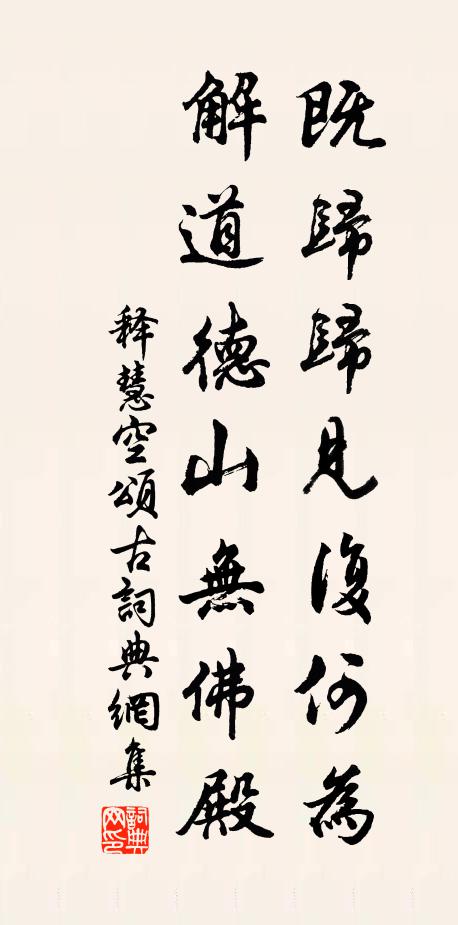 既歸歸見復何為
解道德山無佛殿
释慧空頌古詞典網集
詞典网印